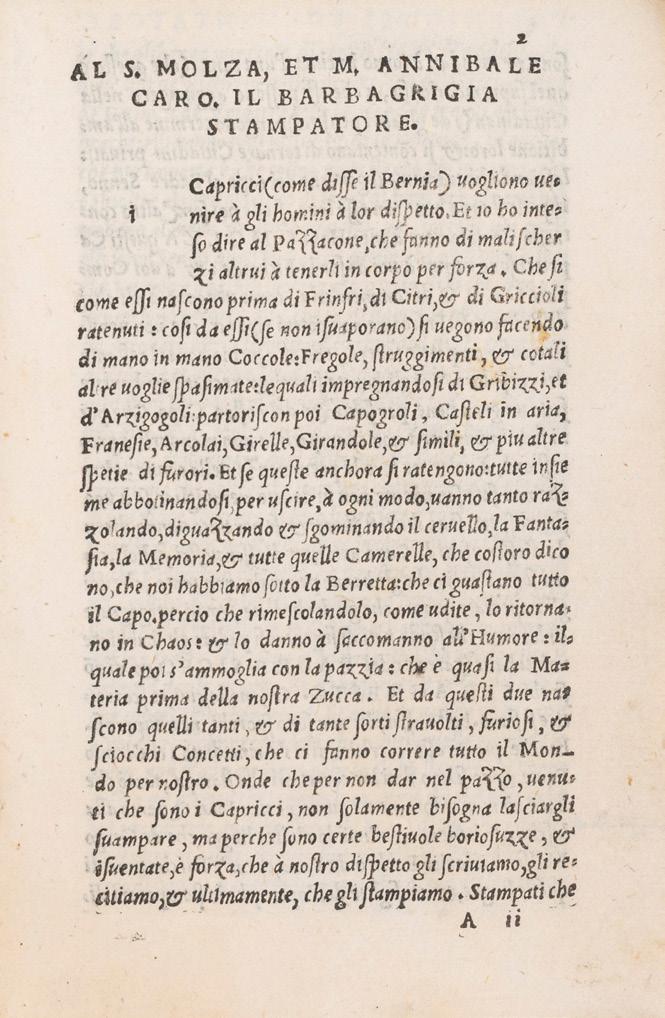 2
AL S. MOLZA, ET M. ANNIBALE
CARO. IL BARBAGRIGIA
STAMPATORE.
i
Capricci (come disse il Bernia) vogliono ve-
nire à gli homini à lor dispetto. Et io ho inte-
so dire al Pazzacone, che fanno di mali scher
zi altrui à tenerli in corpo per forza. Che si
come essi nascono prima di Frinfri, di Citri, & di Griccioli
ratenuti: cosi da essi (se non isuaporano) si vegono facendo
di mano in mano Coccole: Fregole, struggimenti, & cotali
altre voglie spasimate: le quali impregnandosi di Gribizzi, et
d'Arzigogoli: partoriscon poi Capogroli, Casteli in aria,
Franesie, Arcolai, Girelle, Girandole, & simili, & piu altre
spetie di furori. Et se queste anchora si ratengono: tutte insie
me abbotinandosi, per uscire, à ogni modo, vanno tanto raz-
zolando, diguazzando & sgominando il cervello, la Fanta-
sia, la Memoria, & tutte quelle Camerelle, che costoro dico
no, che noi habbiamo sotto la Berretta: che ci guastano tutto
il Capo. percio che rimescolandolo, come udite, lo ritorna-
no in Chaos: & lo danno à saccomanno all'Humore: il-
quale poi s'ammoglia con la pazzia: che è quasi la Ma-
teria prima della nostra Zucca. Et da questi due na-
scono quelli tanti, & di tante sorti stravolti, furiosi, &
sciocchi Concetti, che ci fanno correre tutto il Mon-
do per nostro. Onde che per non dar nel pazzo, venu-
ti che sono i Capricci, non solamente bisogna lasciargli
suampare, ma perche sono certe bestivole boriosuzze, &
isuentate, è forza, che à nostro dispetto gli scriviamo, gli re-
citiamo, & ultimamente, che gli stampiamo. Stampati che
A ii